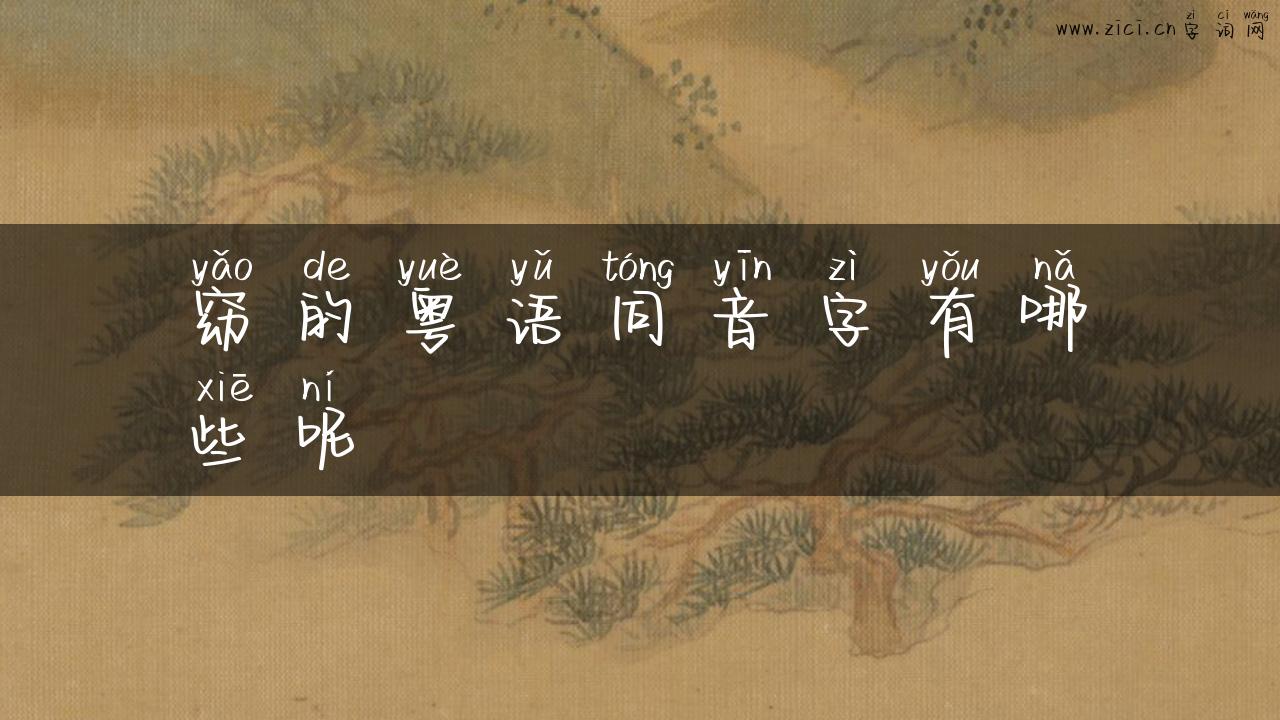 www.zici.cn zì cí wǎng
字词网
yǎo de yuè yǔ tóng yīn zì yǒu nǎ
窈的粤语同音字有哪
xiē ní
些呢